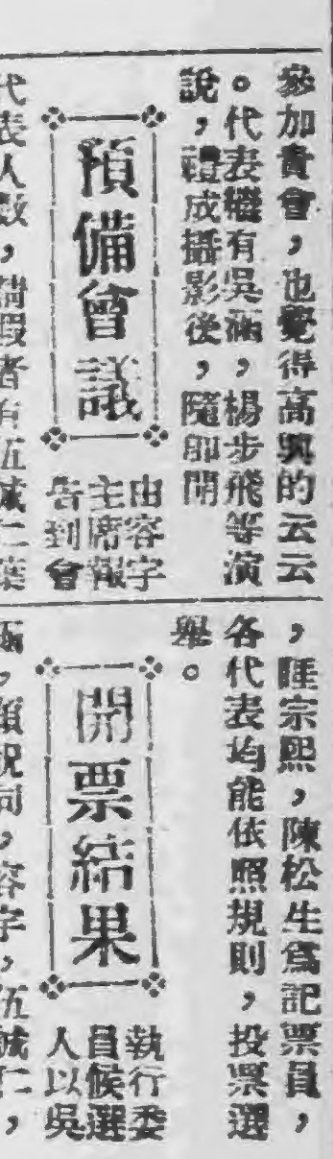 參加貴會，也覺得高興的云云
。代表機有吳涵，楊步飛等演
說，禮成攝影後，隨即開
預備會議
由容字
主席報
告到會
代表人數，請假者有伍誠仁葉
，匪宗熙，陳松生爲記票員，
各代表均能依照規則，投票選
舉。
開票結果
執行委
員候選
人以吳
，顧祝同，容字，伍誠仁，